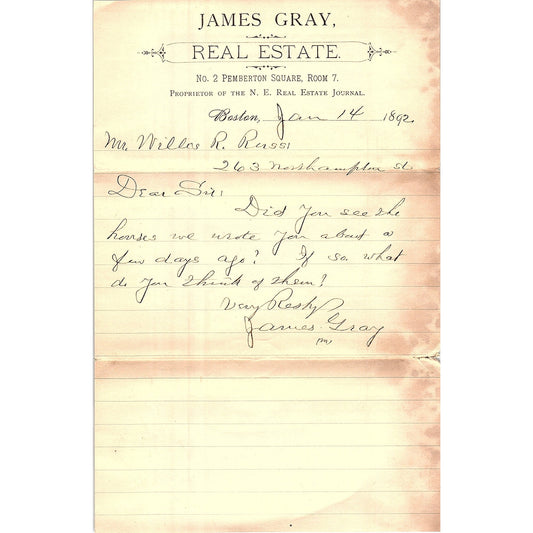 JAMES GRAY,
REAL ESTATE.
No. 2 Pemberton Square, Room 7.
Proprietor of the N. E. Real Estate Journal.
Boston, Jan 14 1892
Mr. R. Russ
263 Northampton St
Dear Sir:
Did you see the
houses we wrote you about a
few days ago? If so what
do you think of them?
Very Respy
James Gray